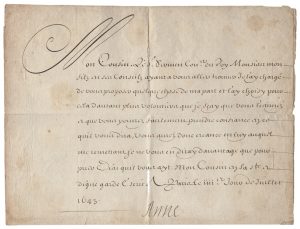 Mon Cousin, Le S. Conr. du Roy Monsieur mon
filz en ses Conseilz ayant a vous aller trouver Je l'ay chargé
de vous proposer quelque chose de ma part et l'ay choisy pour
cela d'autant plus volontiers que je sçay que vous
que vous pouvez prendre confiance a ce
qu'il vous dira, vous donc creance en luy auquel
me remettant, je ne vous en diray d'avantage que pour
prier Dieu qu'il vous ayt Mon Cousin en sa ste et
digne garde. Escrit a Paris le Jour de Juillet
1643.
Anne